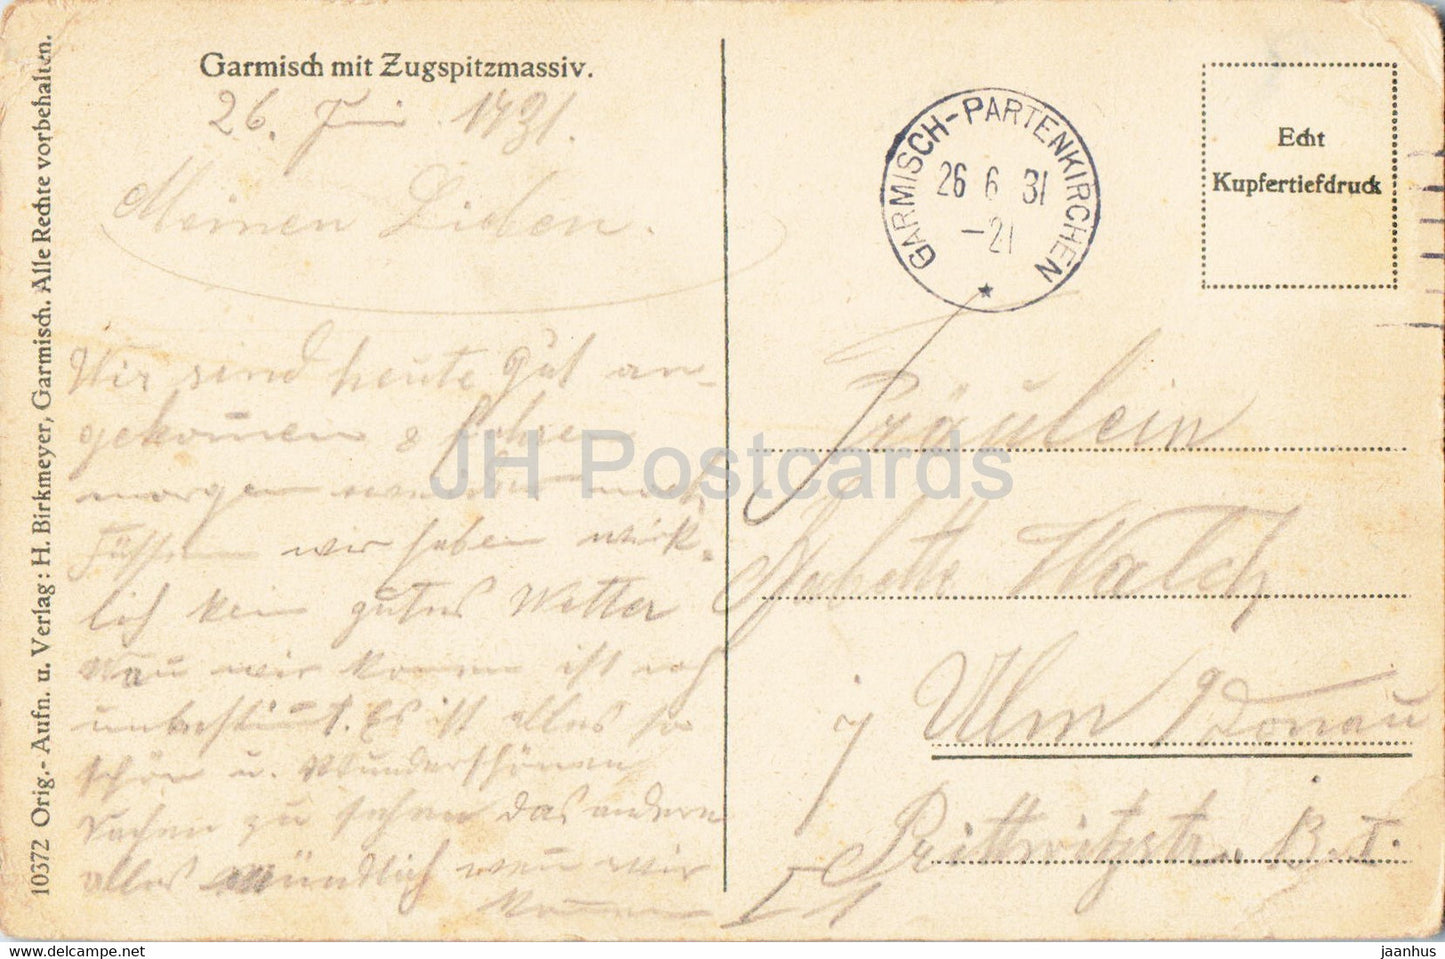 Garmisch mit Zugspitzmassiv.
26. Juni 1931.
Meinen Lieben.
Wir sind heute gut an-
gekommen & fahren
morgen weiter nach
Füssen wir haben wirk-
lich kein gutes Wetter
Wan wir kommen ist noch
unbestimt. Es ist alles so
schön u. Wunderschönen
Sachen zu sehen das andere
alles mündlich wen wir
kommen
10372 Orig.- Aufn. u. Verlag: H. Birkmeyer, Garmisch. Alle Rechte vorbehalten.
GARMISCH-PARTENKIRCHEN
26 6 31
-21
Echt
Kupfertiefdruck
Fräulein
Babette Walch
Ulm / Donau
Prittwitzstr. B. I.
JH Postcards
https://www.jhpostcards.com
jaanhus